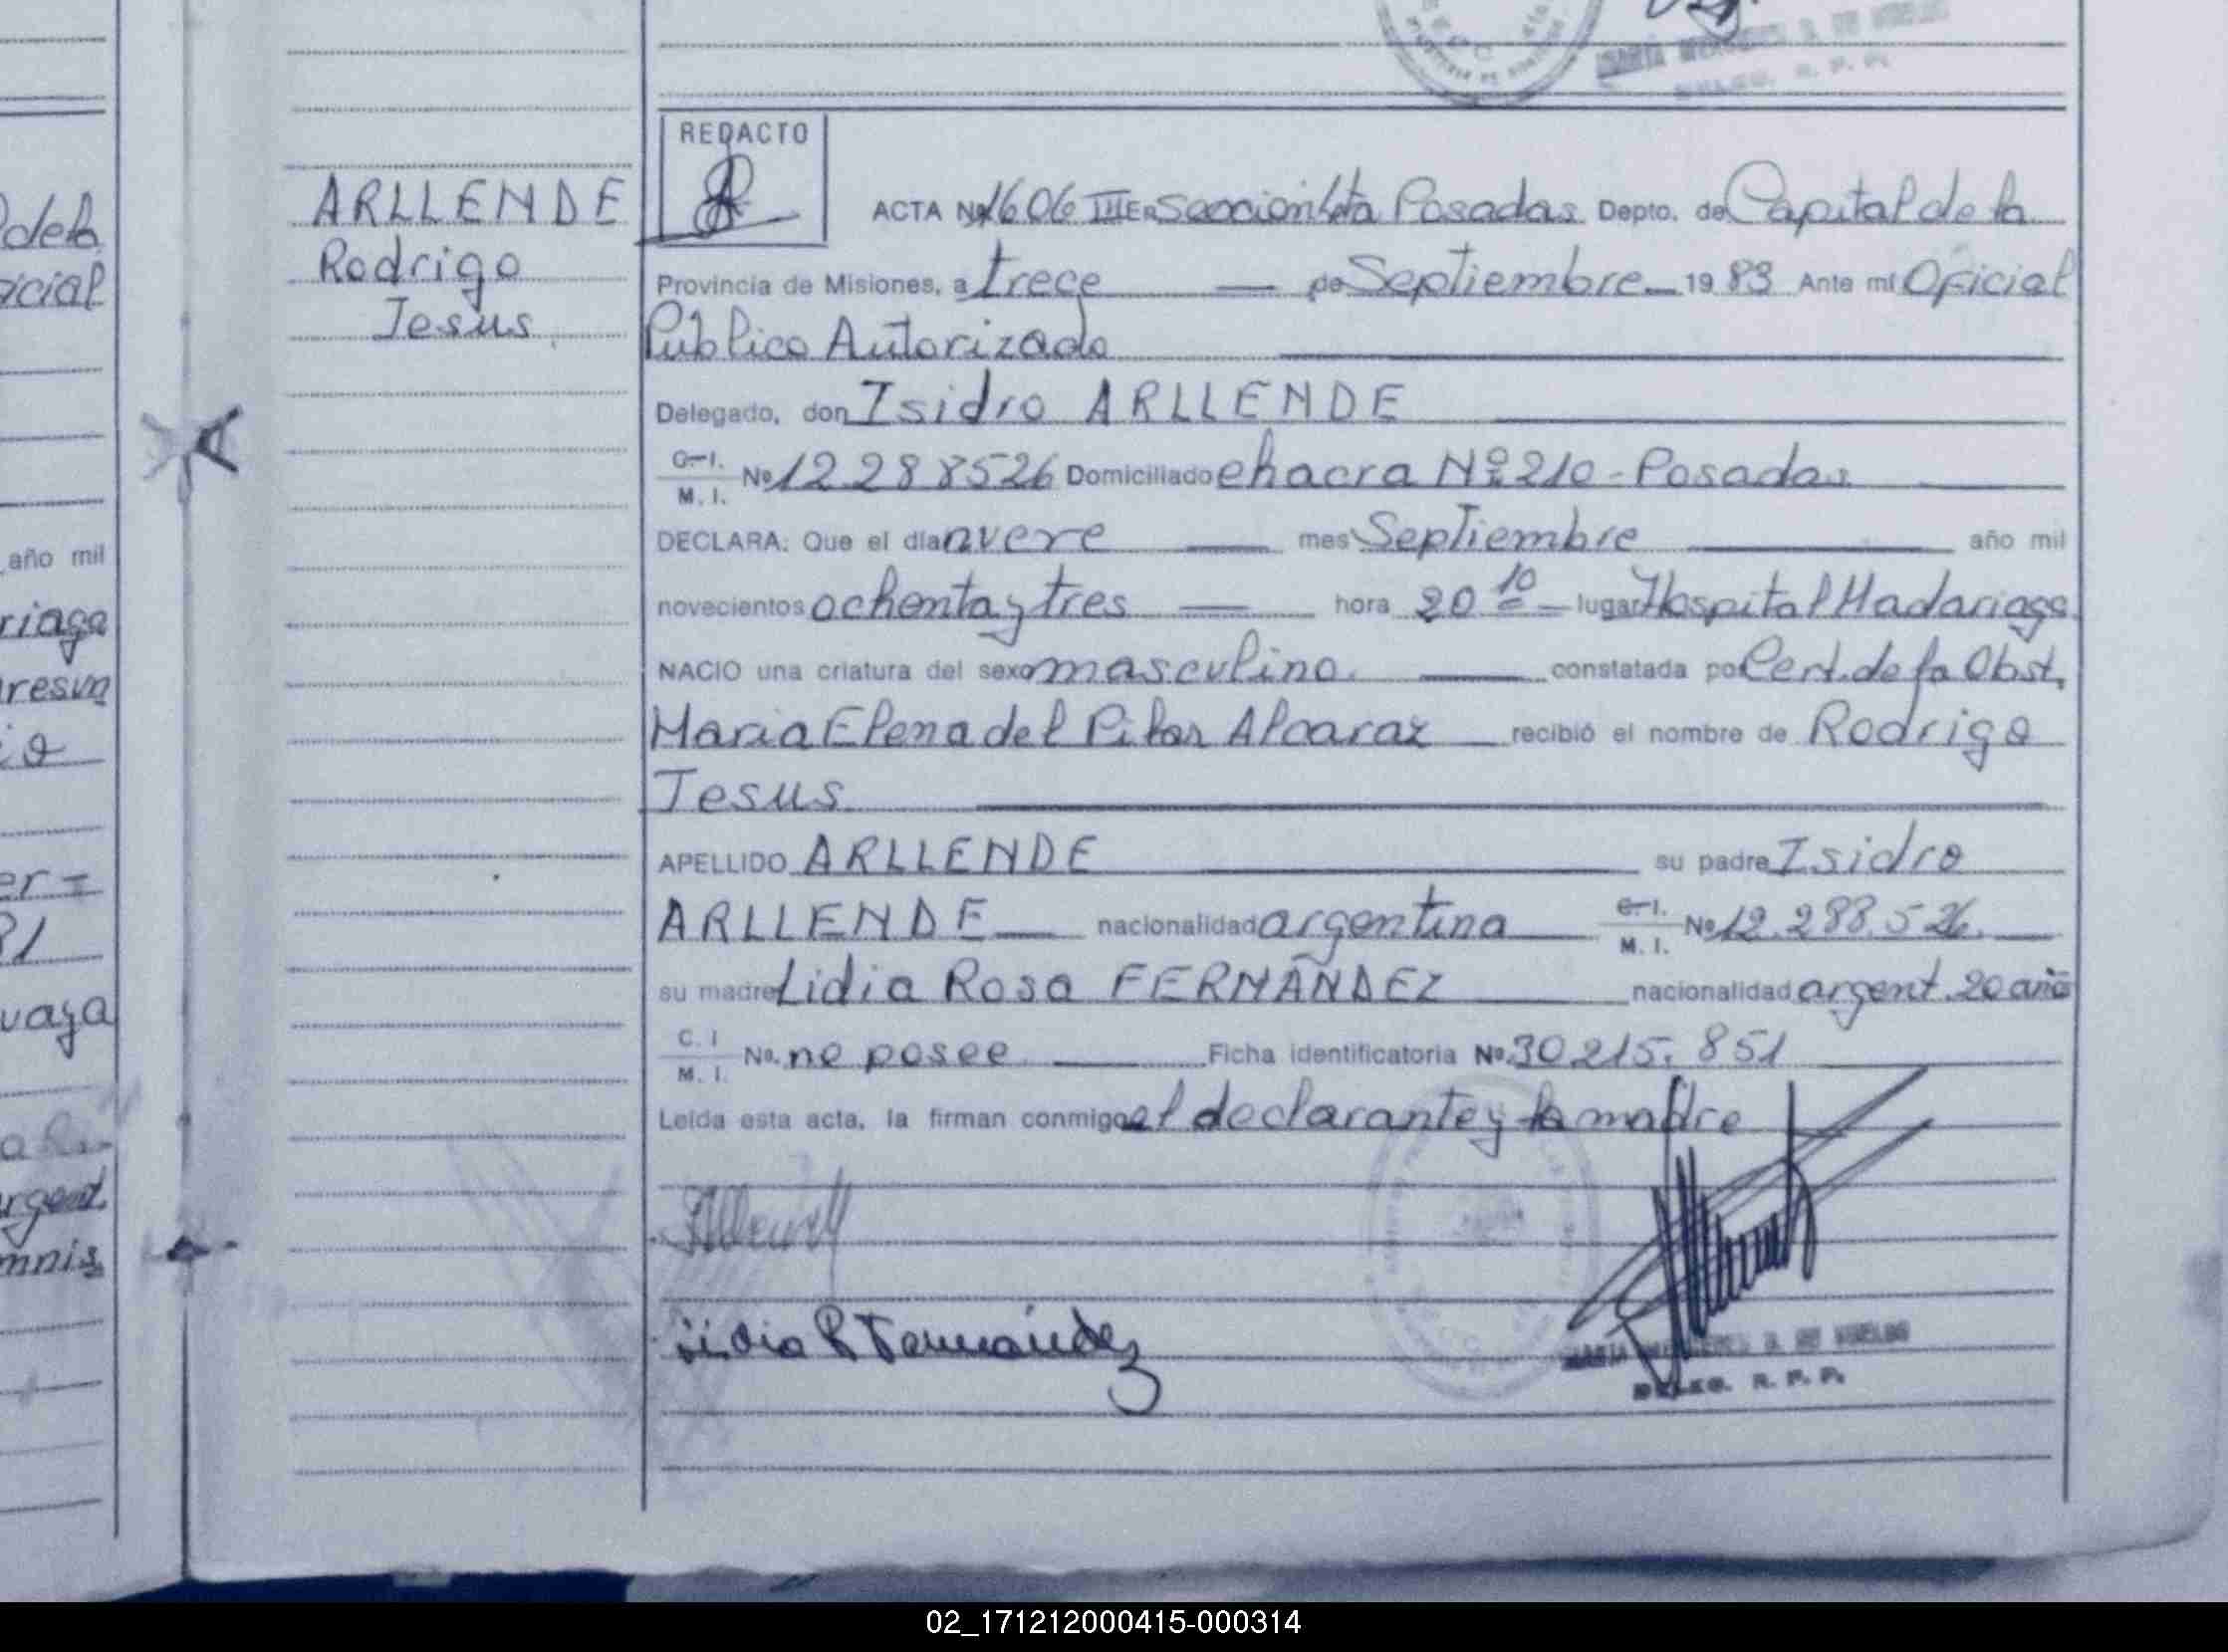 MARIA MERCEDES
DELEG. R. P. P.
REDACTO
ARLLENDE
Rodrigo
Jesus
ACTA Nº 1606 III EN Sección 4ta Posadas Depto. de Capital de la
Provincia de Misiones, a trece — de Septiembre — 1983 Ante mí Oficial
Público Autorizado
Delegado, don Isidro ARLLENDE
C. I. M. I. Nº 12288526 Domiciliado chacra Nº 210 - Posadas
DECLARA: Que el día nueve — mes Septiembre — año mil
novecientos ochenta y tres — hora 20 10 — lugar Hospital Madariaga
NACIO una criatura del sexo masculino. — constatada por Cert. de la Obst.
Maria Elena del Pilar Alcaraz — recibió el nombre de Rodrigo
Jesus
APELLIDO ARLLENDE — su padre Isidro
ARLLENDE — nacionalidad argentina C. I. M. I. Nº 12.288.526. —
su madre Lidia Rosa FERNÁNDEZ — nacionalidad argent. 20 años
C. I M. I. No. no posee — Ficha identificatoria Nº 30215.851
Leída esta acta, la firman conmigo el declarante y la madre
Lidia R Fernández
MARIA MERCEDES
DELEG. R. P. P.
de la
icial
año mil
riaga
er =
81
uaya
argent.
02_171212000415-000314